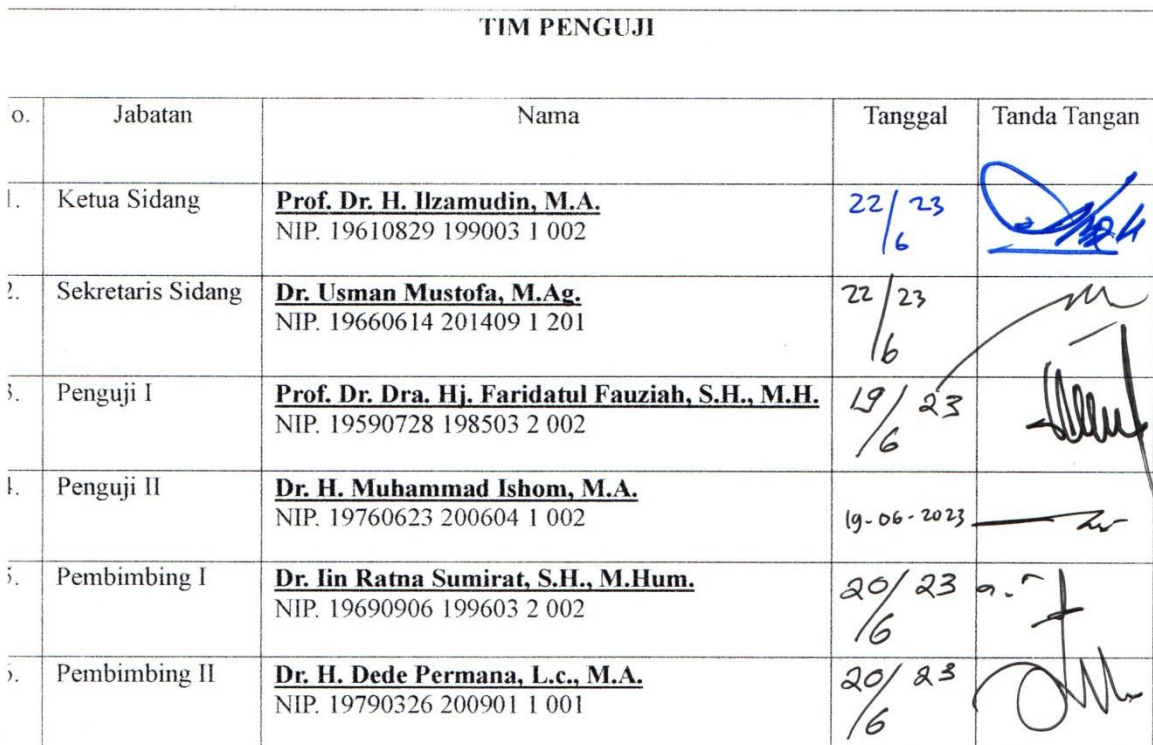 TIM PENGUJI
o. Jabatan Nama Tanggal Tanda Tangan
1. Ketua Sidang Prof. Dr. H. Ilzamudin, M.A. 22/23
NIP. 19610829 199003 1 002 6
2. Sekretaris Sidang Dr. Usman Mustofa, M.Ag. 22/23
NIP. 19660614 201409 1 201 6
3. Penguji I Prof. Dr. Dra. Hj. Faridatul Fauziah, S.H., M.H. 19/23
NIP. 19590728 198503 2 002 6
4. Penguji II Dr. H. Muhammad Ishom, M.A.
NIP. 19760623 200604 1 002 19-06-2023
5. Pembimbing I Dr. Iin Ratna Sumirat, S.H., M.Hum. 20/23
NIP. 19690906 199603 2 002 6
Pembimbing II Dr. H. Dede Permana, L.c., M.A. 20/23
NIP. 19790326 200901 1 001 6